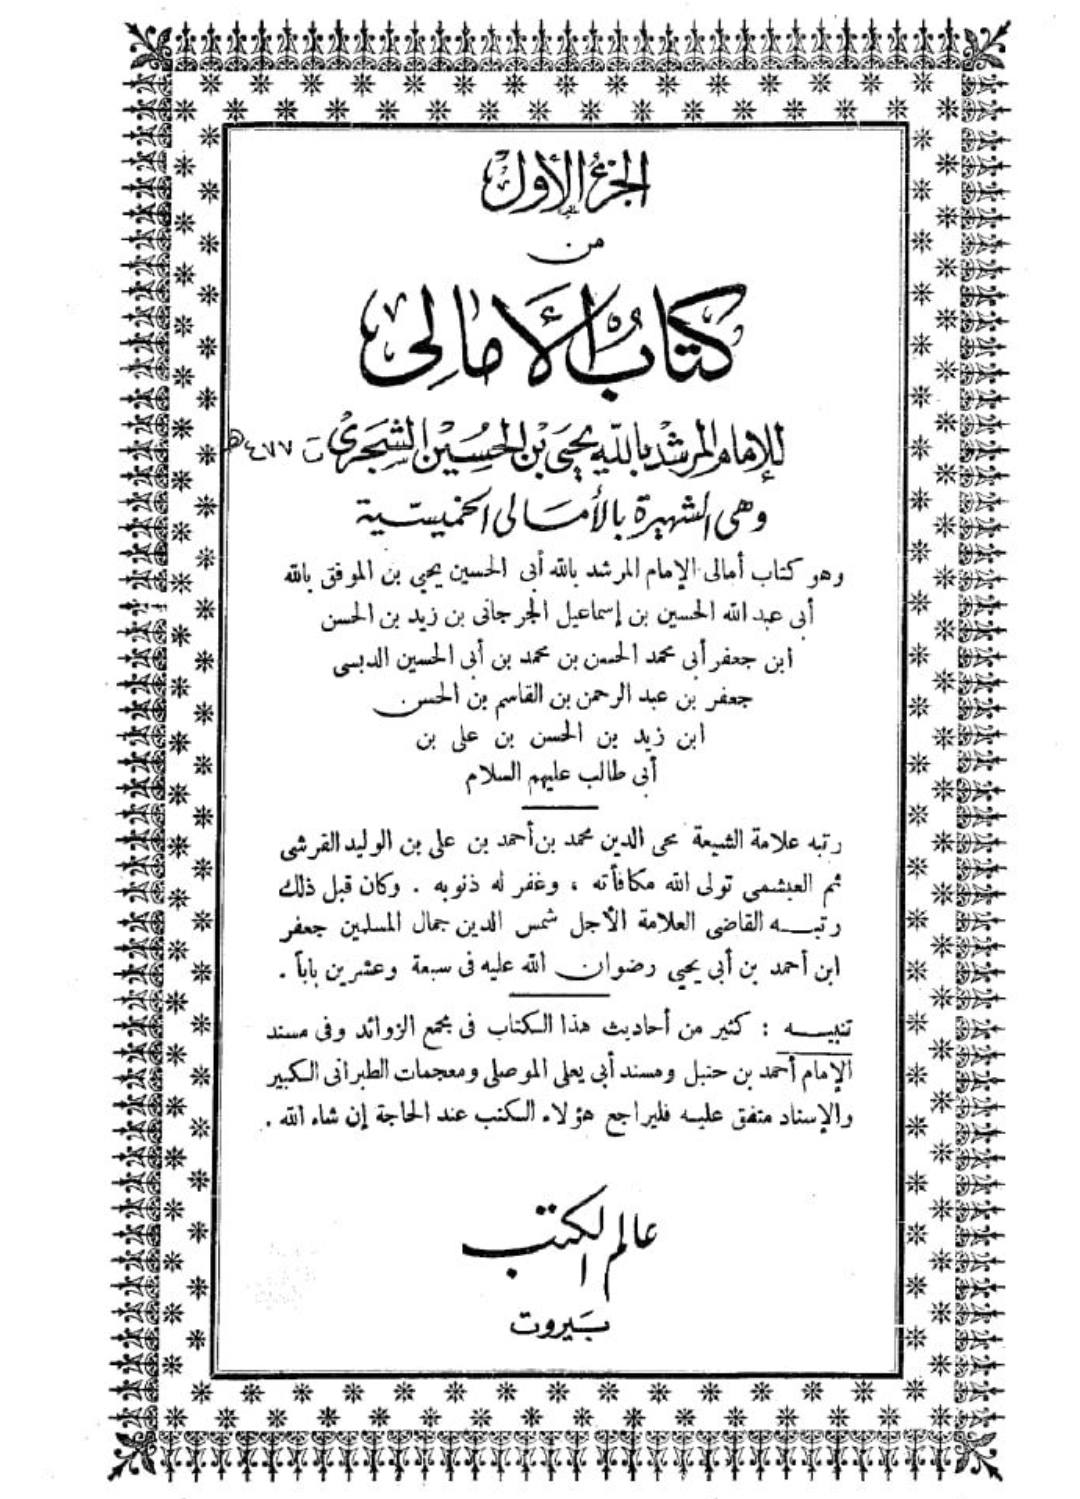 الجزء الأول
من
كتاب الأمالى
للإمام المرشد بالله يحيى بن الحسين الشجرى ت ٤٧٧ هـ
وهى الشهيرة بالأمالى الخميسية
وهو كتاب أمالى الإمام المرشد بالله أبى الحسين يحيى بن الموفق بالله
أبى عبد الله الحسين بن إسماعيل الجرجانى بن زيد بن الحسن
ابن جعفر أبى محمد الحسن بن محمد بن أبى الحسين الدبسى
جعفر بن عبد الرحمن بن القاسم بن الحسن
ابن زيد بن الحسن بن على بن
أبى طالب عليهم السلام
رتبه علامة الشيعة محى الدين محمد بن أحمد بن على بن الوليد القرشى
ثم العبشمى تولى الله مكافأته ، وغفر له ذنوبه . وكان قبل ذلك
رتبـــه القاضى العلامة الأجل شمس الدين جمال المسلمين جعفر
ابن أحمد بن أبي يحيى رضوان الله عليه فى سبعة وعشرين باباً .
تنبيـــه : كثير من أحاديث هذا الكتاب فى مجمع الزوائد وفى مسند
الإمام أحمد بن حنبل ومسند أبى يعلى الموصلى ومعجمات الطبرانى الكبير
والإسناد متفق عليـه فليراجع هؤلاء الكتب عند الحاجة إن شاء الله .
عالم الكتب
بيروت